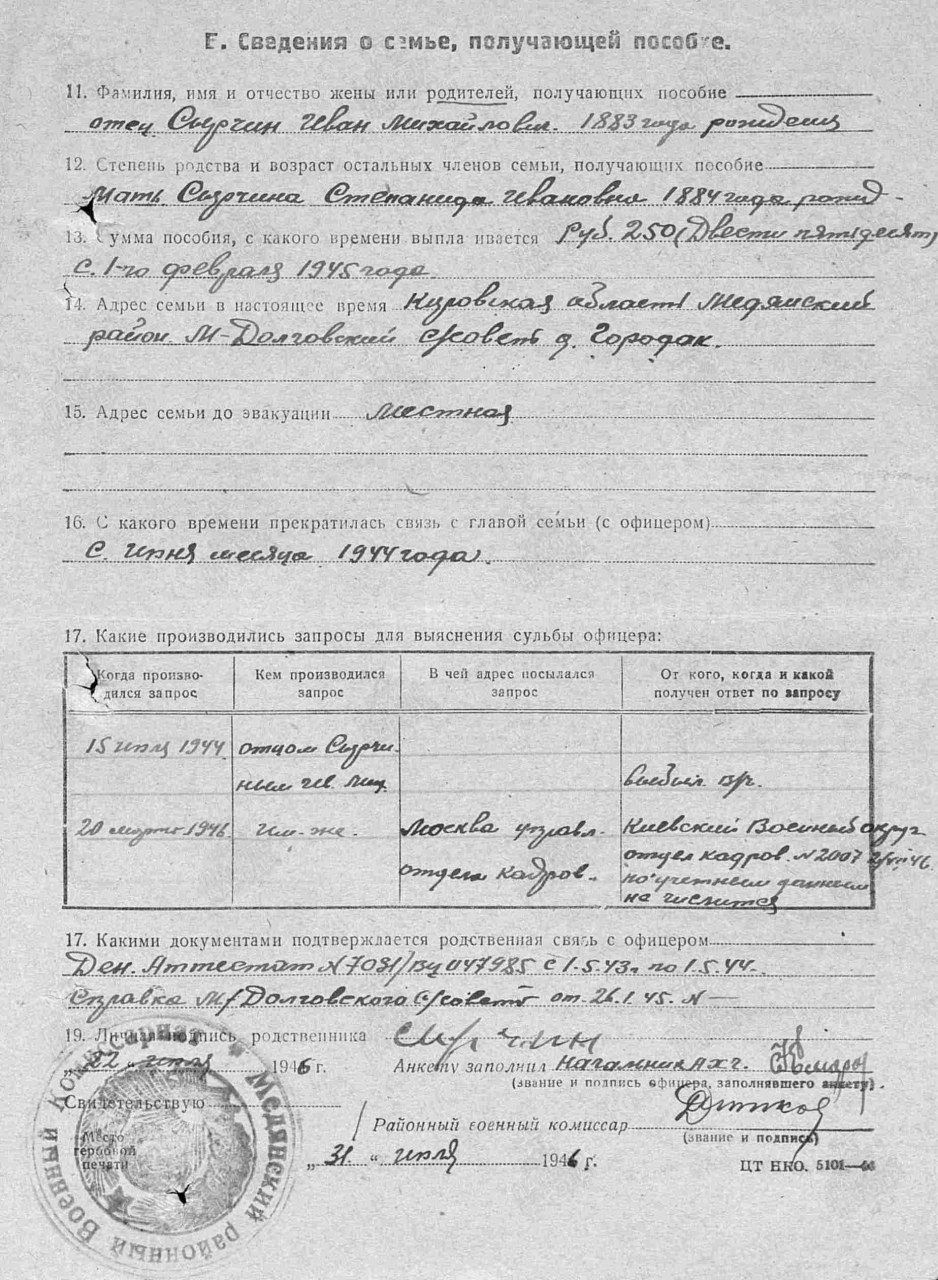 Е. Сведения о семье, получающей пособие.
11. Фамилия, имя и отчество жены или родителей, получающих пособие
отец Сызрчин Иван Михайлович. 1883 года рождения
12. Степень родства и возраст остальных членов семьи, получающих пособие
Мать Степанида Ивановна 1884 года рожд-
13. Сумма пособия, с какого времени выплачивается Руб. 250 (Двести пятьдесят)
с. 1-го февраля 1945 года
14. Адрес семьи в настоящее время Кировская область Медянский
район. М-Долговский с/совет д. Городак.
15. Адрес семьи до эвакуации местная
16. С какого времени прекратилась связь с главой семьи (с офицером)
с. июня месяца 1944 года.
17. Какие производились запросы для выяснения судьбы офицера:
Когда произво-дился запрос
Кем производился запрос
В чей адрес посылался запрос
От кого, когда и какой получен ответ по запросу
15 июля 1944
отцом
ным Ив. Мих.
20 марта 1946
им-же.
Москва управл.
отдела кадров.
Киевский Военный округ
отдел кадров. N 2007
по учетным данным
не числится
17. Какими документами подтверждается родственная связь с офицером
Ден. Аттестат N 7031/ВЦ 047985 с 1.5.43г по 1.5.44.
Справка М/Долговского с/совета от. 26.1.45. N —
19. Личная подпись родственника
„22 „ июля 1946 г.
Анкету заполнил
(звание и подпись офицера, заполнявшего анкету).
Свидетельствую
Районный военный комиссар
(звание и подпись)
Место гербовой печати
„ 31 „ июля 1946 г.
ЦТ НКО. 5101—
Медянский районный Военный Комиссариат